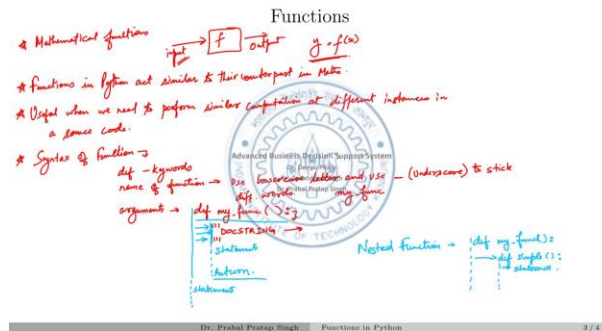 Functions
* Mathematical functions
input → f → output y = f(x)
* Functions in Python act similar to their counterpart in Maths.
* Useful when we need to perform similar computation at different instances in
a source code.
* Syntax of function →
def - keywords
name of function → use lowercase letters and use _ (Underscore) to stick
diff. words my_func
arguments → def my_func ( ) :
""" DOCSTRING →
"""
statement
return.
statement
Nested Function → def my_func():
→ def simple():
→ statement.
Advanced Business Decision Support System
Dr. Prabal Pratap Singh
OF TECHNOLOGY KANPUR
Dr. Prabal Pratap Singh Functions in Python 3 / 4